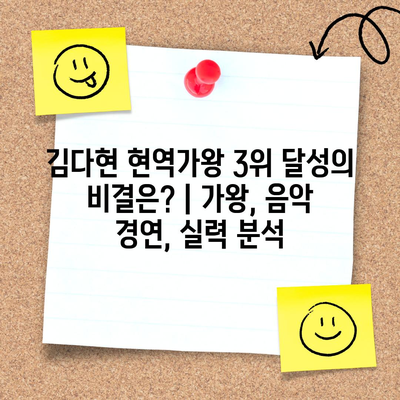 김다현 현역가왕 3위 달성의
비결은? | 가왕, 음악
경연, 실력 분석